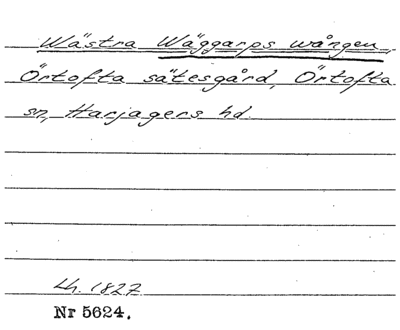 Wästra Wäggarps wången,
Örtofta sätesgård, Örtofta
sn, Harjagers hd.
Lh. 1827
Nr 5624.